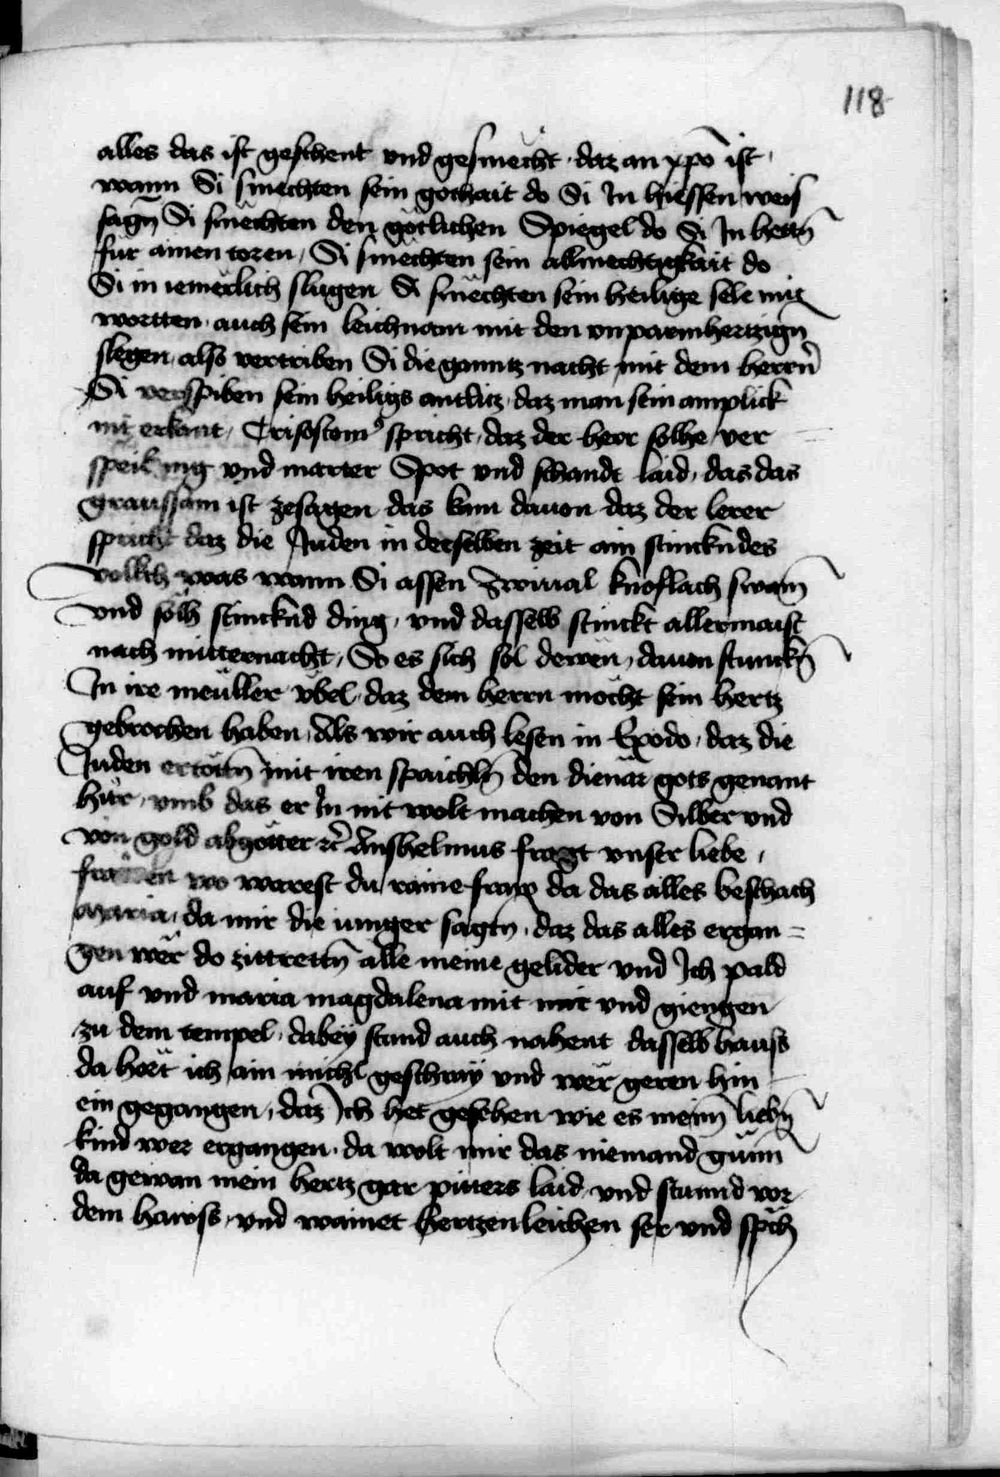 118
alles das ist geschent vnd gesmächt · daz an xpō ist ,
wann Si smechten sein gothait do Si Jn hiessen weis
sagñ Si smëchten den götlichen Spiegel do Si Jn hettñ
für ainen toren / Si smëchten sein allmechtigkait do
Si in iemerlich slugen Si smëchten sein heilige sele mit
wortten · auch sein leichnam mit den vnparmhertzigñ
slegen / also vertriben Si die ganntz nacht mit dem herrñ
Si verspiben sein heiligs antlitz · daz man sein amplick
nit erkant / Crisostomꝰ spricht / daz der herr solhe ver
speibung vnd marter Spot vnd schandt laid / das das
graussam ist zesagen das kam dauon daz der lerer
spricht daz die Juden in derselben zeit ain stinckndes
volkch was wann Si assen Zwiual knoflach swam̄
vnd sölh stincknd ding / vnd dasselb stinckt allermaist
nach mitternacht / So es sich sol dewen / dauon stunckñ
Jn ire meüller vbel · daz dem herrn möcht sein hertz
gebrochen haben / Als wir auch lesen in Exodo / daz die
Juden ertöttñ mit iren spaichlñ den dienär gots genant
hür / vmb das er Jn nit wolt machen von Silber vnd
von gold abgötter ꝛc̄ Anshelmus fragt vnser liebe /
frawen wo warest du raine fraw da das alles beschach
Maria / da mir die iunger sagtñ · daz das alles ergan =
gen wër do zittrettñ alle meine gelider vnd Jch pald
auf vnd maria magdalena mit mir vnd giengen
zu dem tempel · dabey stand auch nahent dasselb hauss
da hört ich ain michl geschray vnd wër geren hin
ein gegangen / daz Jch het gesehen wie es meinñ liebñ
kind wer ergangen · da wolt mir das niemand günñ
da gewan mein hertz gar pitters laid / vnd stuend vor
dem hawss / vnd wainet hertzenleichen ser vnd sp̄ch